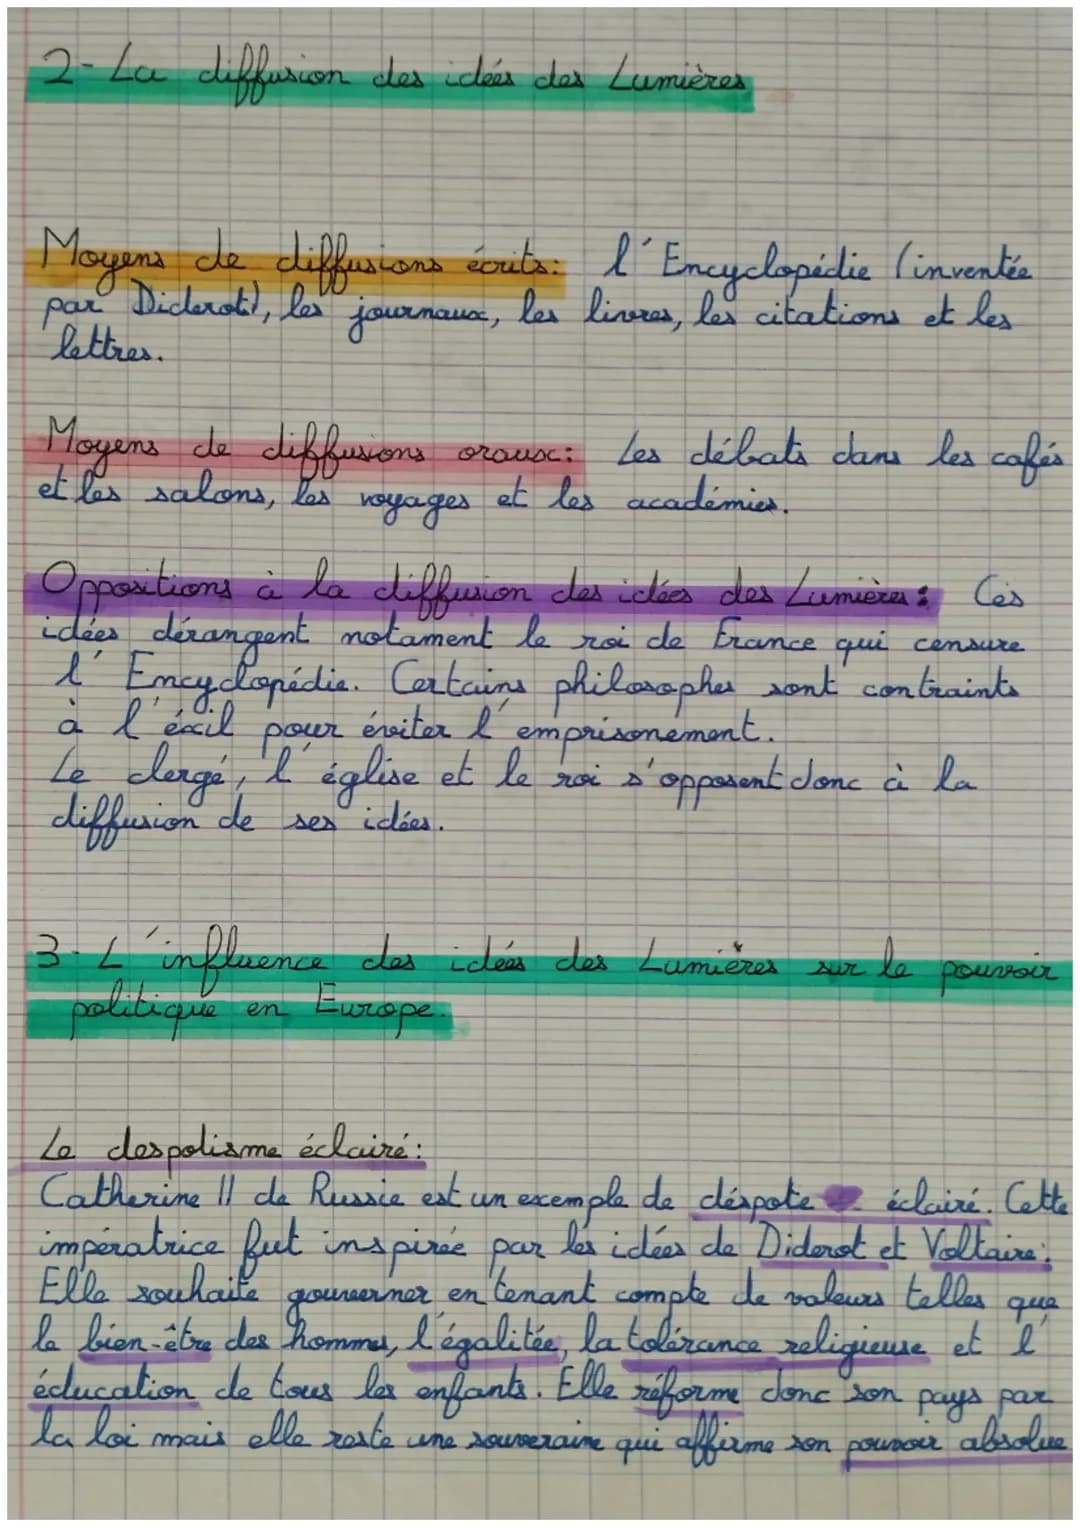 2- La diffusion des idées des Lumières
Moyens de diffusions écrits: l'Encyclopédie (inventée
par Diderot), les journaux, les livres, les citations et les
lettres.
Moyens de diffusions oraux: Les débats dans les cafés
et les salons, les voyages et les académies.
Oppositions à la diffusion des idées des Lumières: Ces
idées dérangent notament le roi de France qui censure
l'Encyclopédie. Certains philosophes sont contraints
à l'éxil pour éviter l'emprisonement.
Le clergé, l'église et le roi s'opposent donc à la
diffusion de ses idées.
3- L'influence des idées des Lumières sur le pouvoir
politique en Europe.
Le despotisme éclairé:
Catherine II de Russie est un exemple de déspote éclairé. Cette
impératrice fut inspirée par les idées de Diderot et Voltaire.
Elle souhaite gouverner en tenant compte de valeurs telles que
le bien-être des hommes, l'égalitée, la tolérance religieuse et l'
éducation de tous les enfants. Elle réforme donc son pays par
la loi mais elle reste une souveraine qui affirme son pouvoir absolue